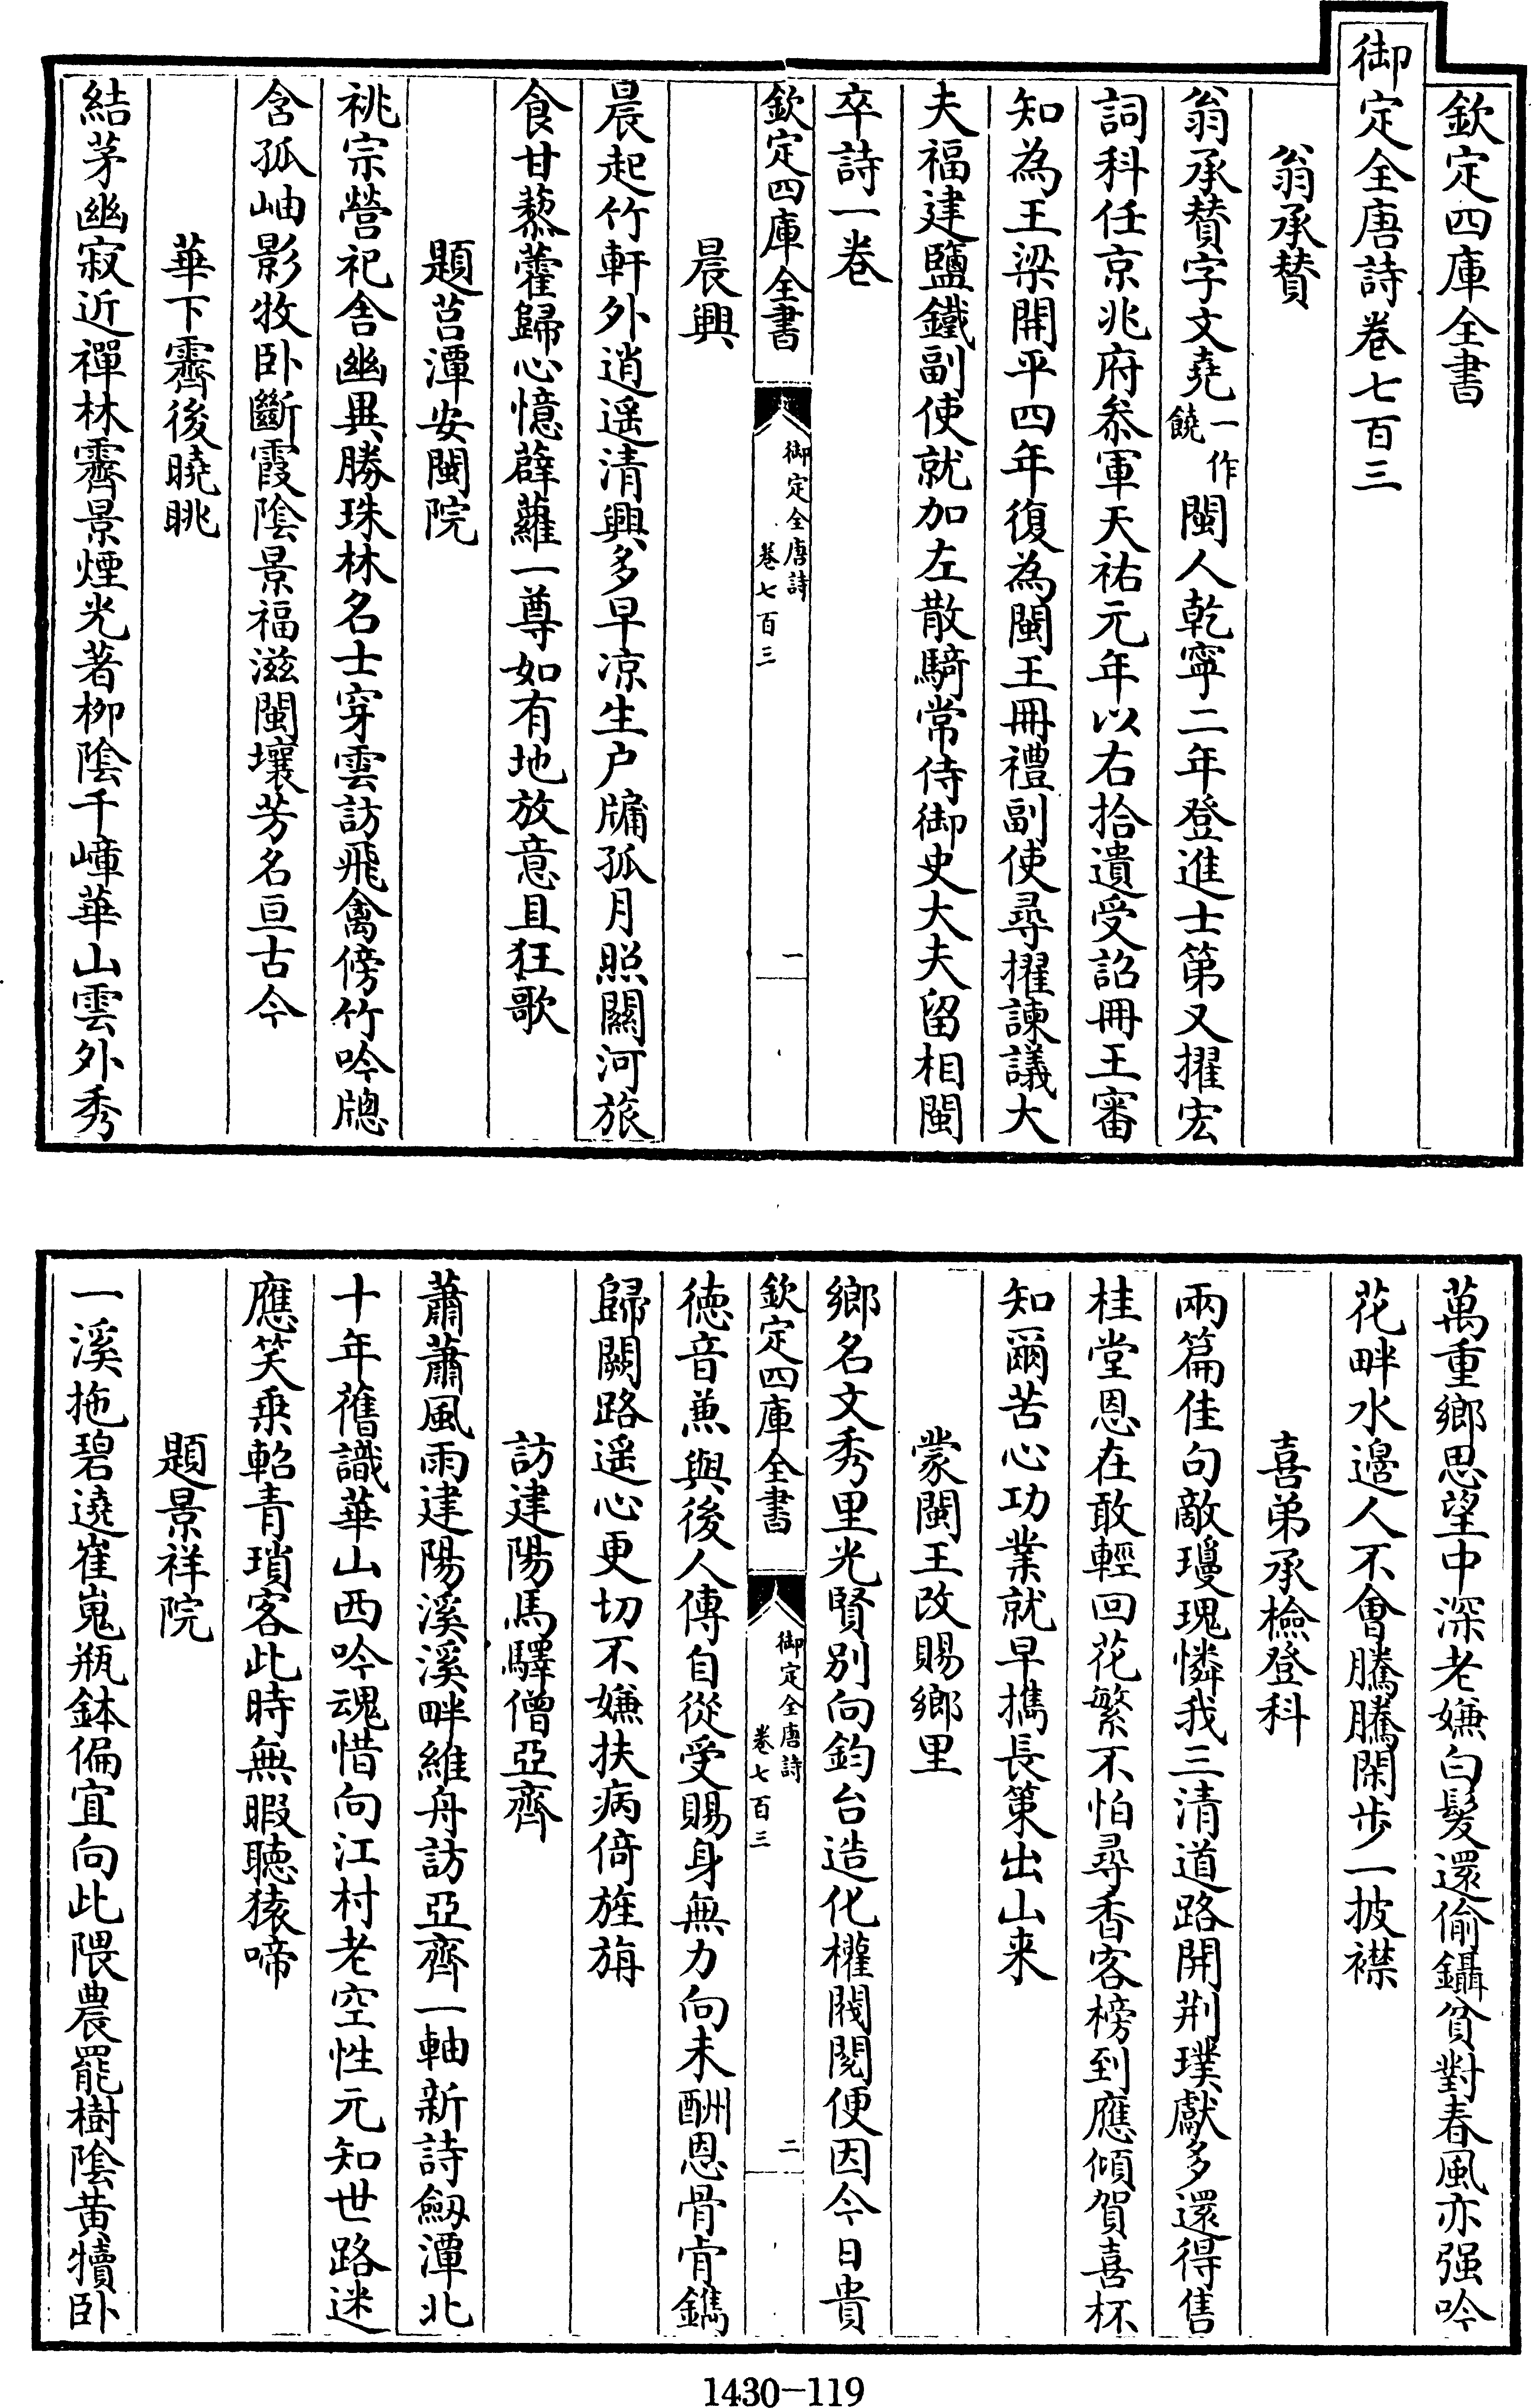 欽定四庫全書
御定全唐詩卷七百三
翁承贊
翁承贊字文堯一作饒閩人乾寧二年登進士第又擢宏
詞科任京兆府叅軍天祐元年以右拾遺受詔冊王審
知為王梁開平四年復為閩王冊禮副使尋擢諫議大
夫福建鹽鐵副使就加左散騎常侍御史大夫留相閩
卒詩一卷
欽定四庫全書
御定全唐詩
卷七百三
一
晨興
晨起竹軒外逍遥清興多早凉生户牖孤月照關河旅
食甘藜藿歸心憶薜蘿一尊如有地放意且狂歌
題莒潭安閩院
祧宗營祀舎幽異勝珠林名士穿雲訪飛禽傍竹吟牕
含孤岫影牧卧斷霞隂景福滋閩壤芳名亘古今
華下霽後曉眺
結茅幽寂近禪林霽景煙光著柳隂千嶂華山雲外秀
萬重鄉思望中深老嫌白髮還偷鑷貧對春風亦强吟
花畔水邉人不會騰騰閑步一披襟
喜弟承檢登科
兩篇佳句敵瓊瑰憐我三清道路開荆璞獻多還得售
桂堂恩在敢輕回花繁不怕尋香客榜到應傾賀喜杯
知爾苦心功業就早攜長策出山来
蒙閩王改賜鄉里
鄉名文秀里光賢别向鈞台造化權閥閲便因今日貴
欽定四庫全書
御定全唐詩
卷七百三
二
德音兼與後人傳自從受賜身無力向未酬恩骨肯鐫
歸闕路遥心更切不嫌扶病倚旌旃
訪建陽馬驛僧亞齊
蕭蕭風雨建陽溪溪畔維舟訪亞齊一軸新詩劔潭北
十年舊識華山西吟魂惜向江村老空性元知世路迷
應笑乗軺青瑣客此時無暇聴猿啼
題景祥院
一溪拖碧遶崔嵬瓶鉢偏宜向此隈農罷樹隂黄犢卧
1430-119